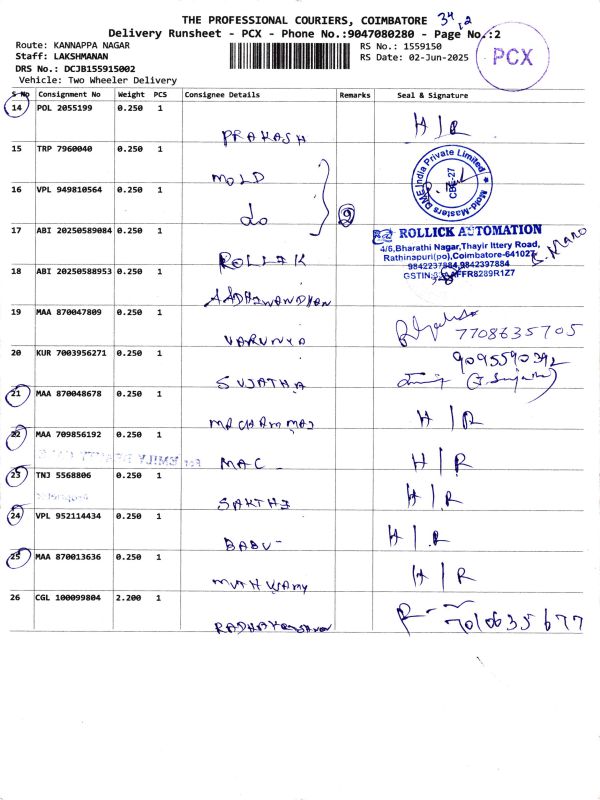 THE PROFESSIONAL COURIERS, COIMBATORE
Delivery Runsheet - PCX - Phone No.:9047080280 - Page No.:2
Route: KANNAPPA NAGAR
RS No.: 1559150
Staff: LAKSHMANAN
RS Date: 02-Jun-2025
DRS No.: DCJB155915002
Vehicle: Two Wheeler Delivery
PCX
S No Consignment No Weight PCS Consignee Details Remarks Seal & Signature
14 POL 2055199 0.250 1
PRAKASH H/R
15 TRP 7960040 0.250 1
MOLD
Mold-Masters DME India Private Limited
CBE-27
16 VPL 949810564 0.250 1
do 2
17 ABI 20250589084 0.250 1
ROLLICK AUTOMATION
4/6,Bharathi Nagar,Thayir Ittery Road,
Rathinapuri(po),Coimbatore-641027
9842237884,9842397884
18 ABI 20250588953 0.250 1
19 MAA 870047809 0.250 1
7708635705
20 KUR 7003956271 0.250 1
SUJATHA
21 MAA 870048678 0.250 1
H/R
22 MAA 709856192 0.250 1
MAC H/R
23 TNJ 5568806 0.250 1
SAKTHI H/R
24 VPL 952114434 0.250 1
BABU H/R
25 MAA 870013636 0.250 1
H/R
26 CGL 100099804 2.200 1
7010635677